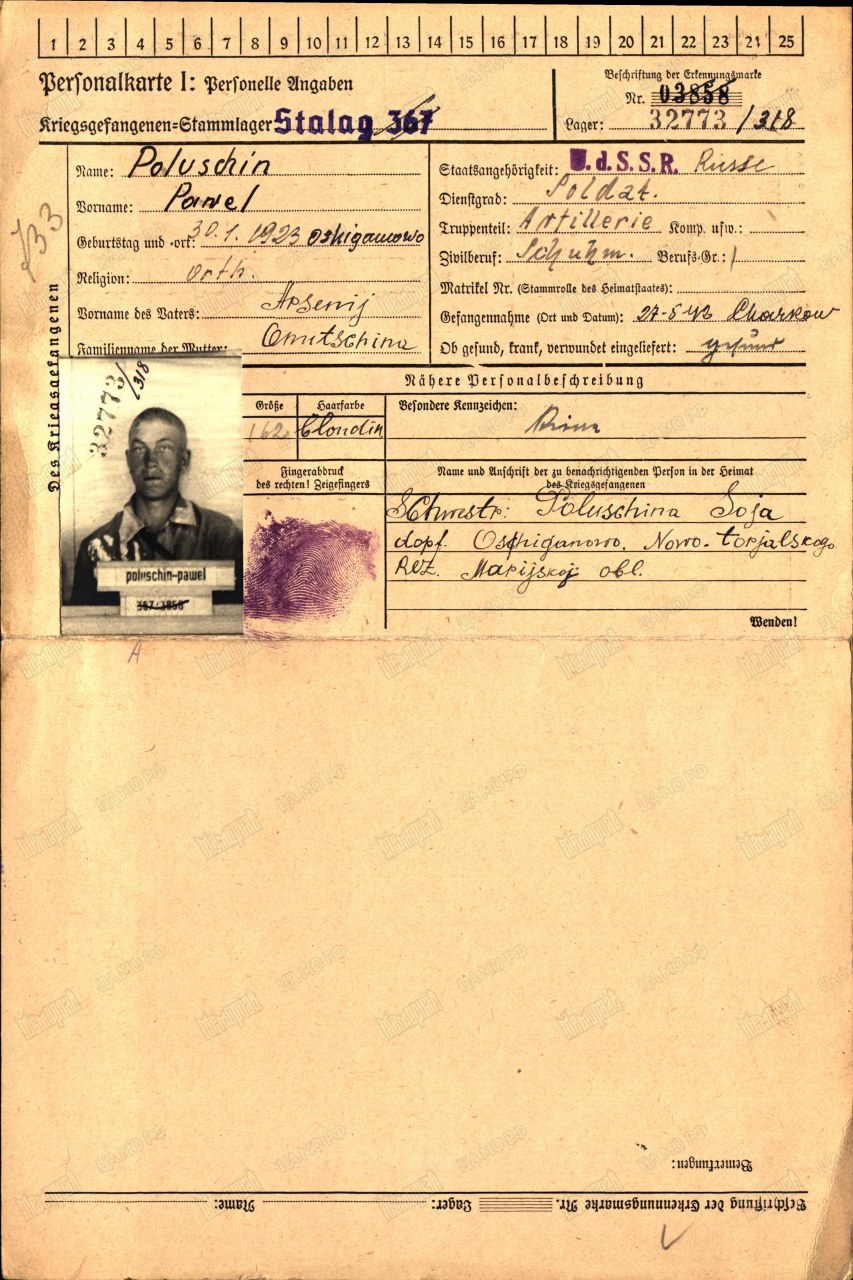 1 2 3 4 5 6 7 8 9 10 11 12 13 14 15 16 17 18 19 20 21 22 23 24 25
Personalkarte I: Personelle Angaben
Kriegsgefangenen-Stammlager Stalag 367
Beschriftung der Erkennungsmarke
Nr. 03858
Lager: 32773/318
Des Kriegsgefangenen
Name: Poluschin
Vorname: Pawel
Geburtstag und -ort: 30.1.1923 Oshiganowo
Religion: Orth.
Vorname des Vaters: Arsenij
Familienname der Mutter:
Staatsangehörigkeit: U.d.S.S.R. Russe
Dienstgrad: Soldat.
Truppenteil: Artillerie Komp. usw.:
Zivilberuf: Schuhm. Berufs-Gr.:
Matrikel Nr. (Stammrolle des Heimatstaates):
Gefangennahme (Ort und Datum): 27-5-42 Charkow
Ob gesund, krank, verwundet eingeliefert: gesund
32773/318
poluschin-pawel
367/3858
Nähere Personalbeschreibung
Größe
162
Haarfarbe
blondin
Besondere Kennzeichen:
Fingerabdruck
des rechten! Zeigefingers
Name und Anschrift der zu benachrichtigenden Person in der Heimat
des Kriegsgefangenen
Schwestr: Poluschina Soja
dopf. Oschiganowo. Nowo-torjalskogo
Rez. Marijskoj obl.
Wenden!
A
Bemerkungen:
Beschriftung der Erkennungsmarke Nr. Lager: Name: